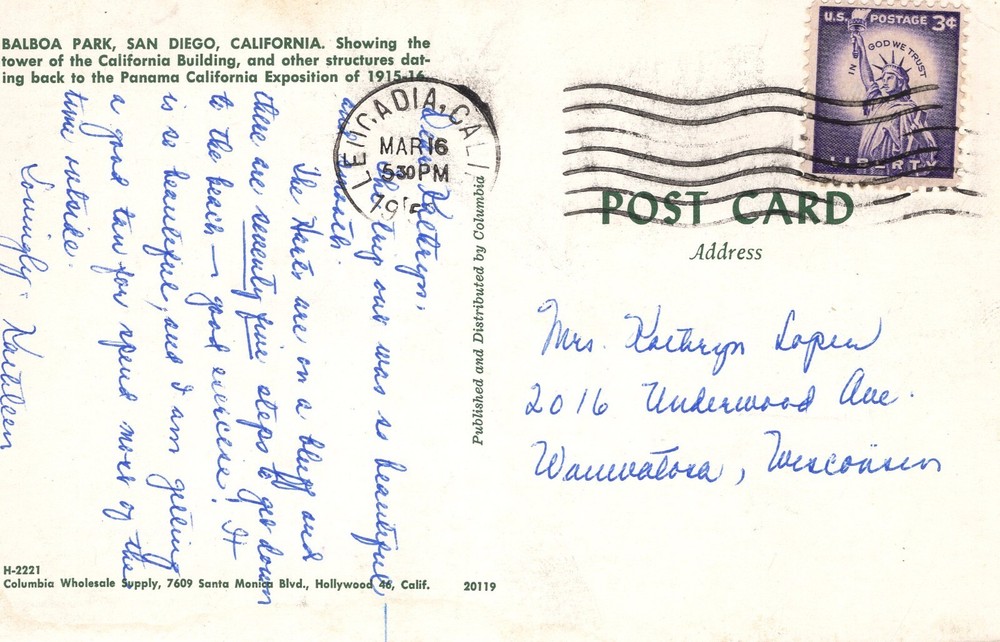 BALBOA PARK, SAN DIEGO, CALIFORNIA. Showing the
tower of the California Building, and other structures dat-
ing back to the Panama California Exposition of 1915-16.
Dear Kathryn,
trip out was so beautiful
and smooth.
The Harts are on a bluff and
there are seventy five steps to get down
to the beach — good exercise! It
is so beautiful, and I am getting
a good tan for spend most of the
time outside.
Lovingly - Kathleen
H-2221
Columbia Wholesale Supply, 7609 Santa Monica Blvd., Hollywood 46, Calif.
20119
Published and Distributed by Columbia
LEUCADIA, CALIF
MAR 16
5 30 PM
U.S. POSTAGE 3¢
IN GOD WE TRUST
LIBERTY
POST CARD
Address
Mrs. Kathryn Lopen
2016 Underwood Ave.
Wauwatosa, Wisconsin